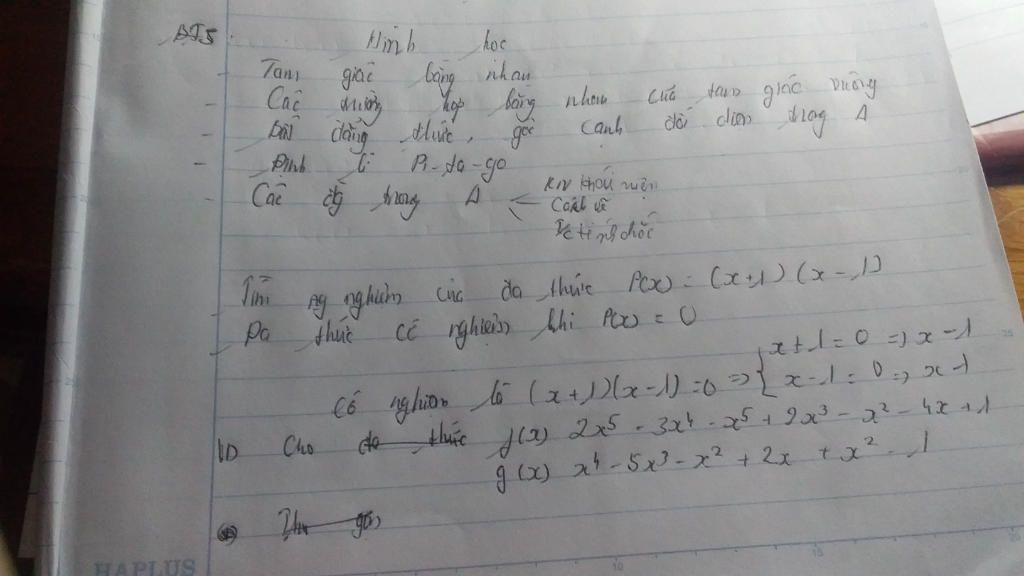 Hình học
- Tam giác bằng nhau
- Các trường hợp bằng nhau của tam giác vuông
- Bất đẳng thức, góc cạnh đối diện trong Δ
- Định lí Pi-ta-go
Các đg trong Δ
Cách vẽ
T/c tính chất
Tìm ng nghiệm của đa thức P(x) = (x+1)(x-1)
Đa thức có nghiệm khi P(x) = 0
Có nghiệm là (x+1)(x-1)=0 => { x+1=0 => x-1
x-1=0 => x-1
1) Cho đa thức f(x) 2x⁵ - 3x⁴ - x⁵ + 2x³ - x² - 4x + 1
g(x) x⁴ - 5x³ - x² + 2x + x² - 1
Thu gọn
HAPLUS